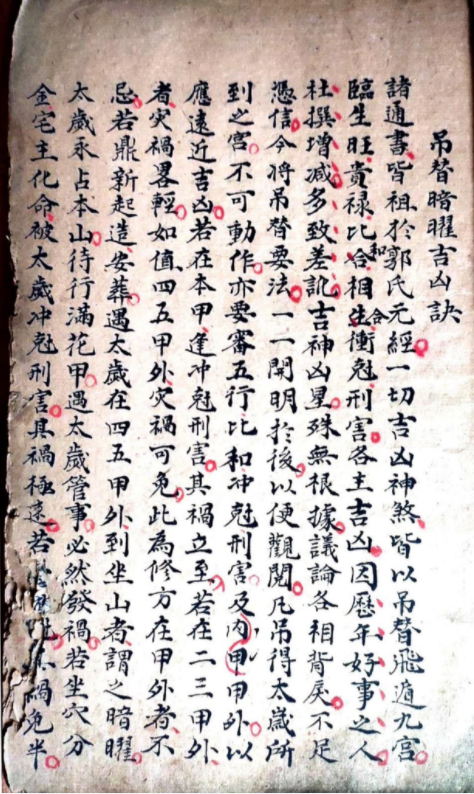 吊替暗曜吉凶訣
諸通書皆祖於郭氏元經一切吉凶神煞皆以吊替飛遁九宮
臨生旺貴禄比和合相生合衝尅刑害各主吉凶因歷年好事之人
杜撰增減多致差訛吉神凶星殊無根據議論各相背戾不足
憑信今將吊替要法一一開明於後以便觀閱凡吊得太歲所
到之宮不可動作亦要審五行比和冲尅刑害及内甲甲外以
應遠近吉凶若在本甲逢冲尅刑害其禍立至若在二三甲外
者灾禍畧輕如值四五甲外灾禍可免此為修方在甲外者不
忌若鼎新起造安葬遇太歲在四五甲外到坐山者謂之暗曜
太歲永占本山待行滿花甲遇太歲管事必然發禍若坐穴分
金宅主化命被太歲冲尅刑害其禍極速若禍免半